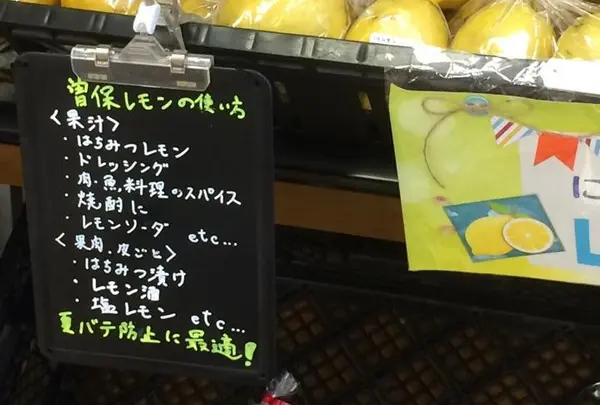 曽保レモンの使い方
<果汁>
・はちみつレモン
・ドレッシング
・肉・魚料理のスパイス
・焼酎に
・レモンソーダ etc...
<果肉、皮ごと>
・はちみつ漬け
・レモン酒
・塩レモン etc...
夏バテ防止に最適!